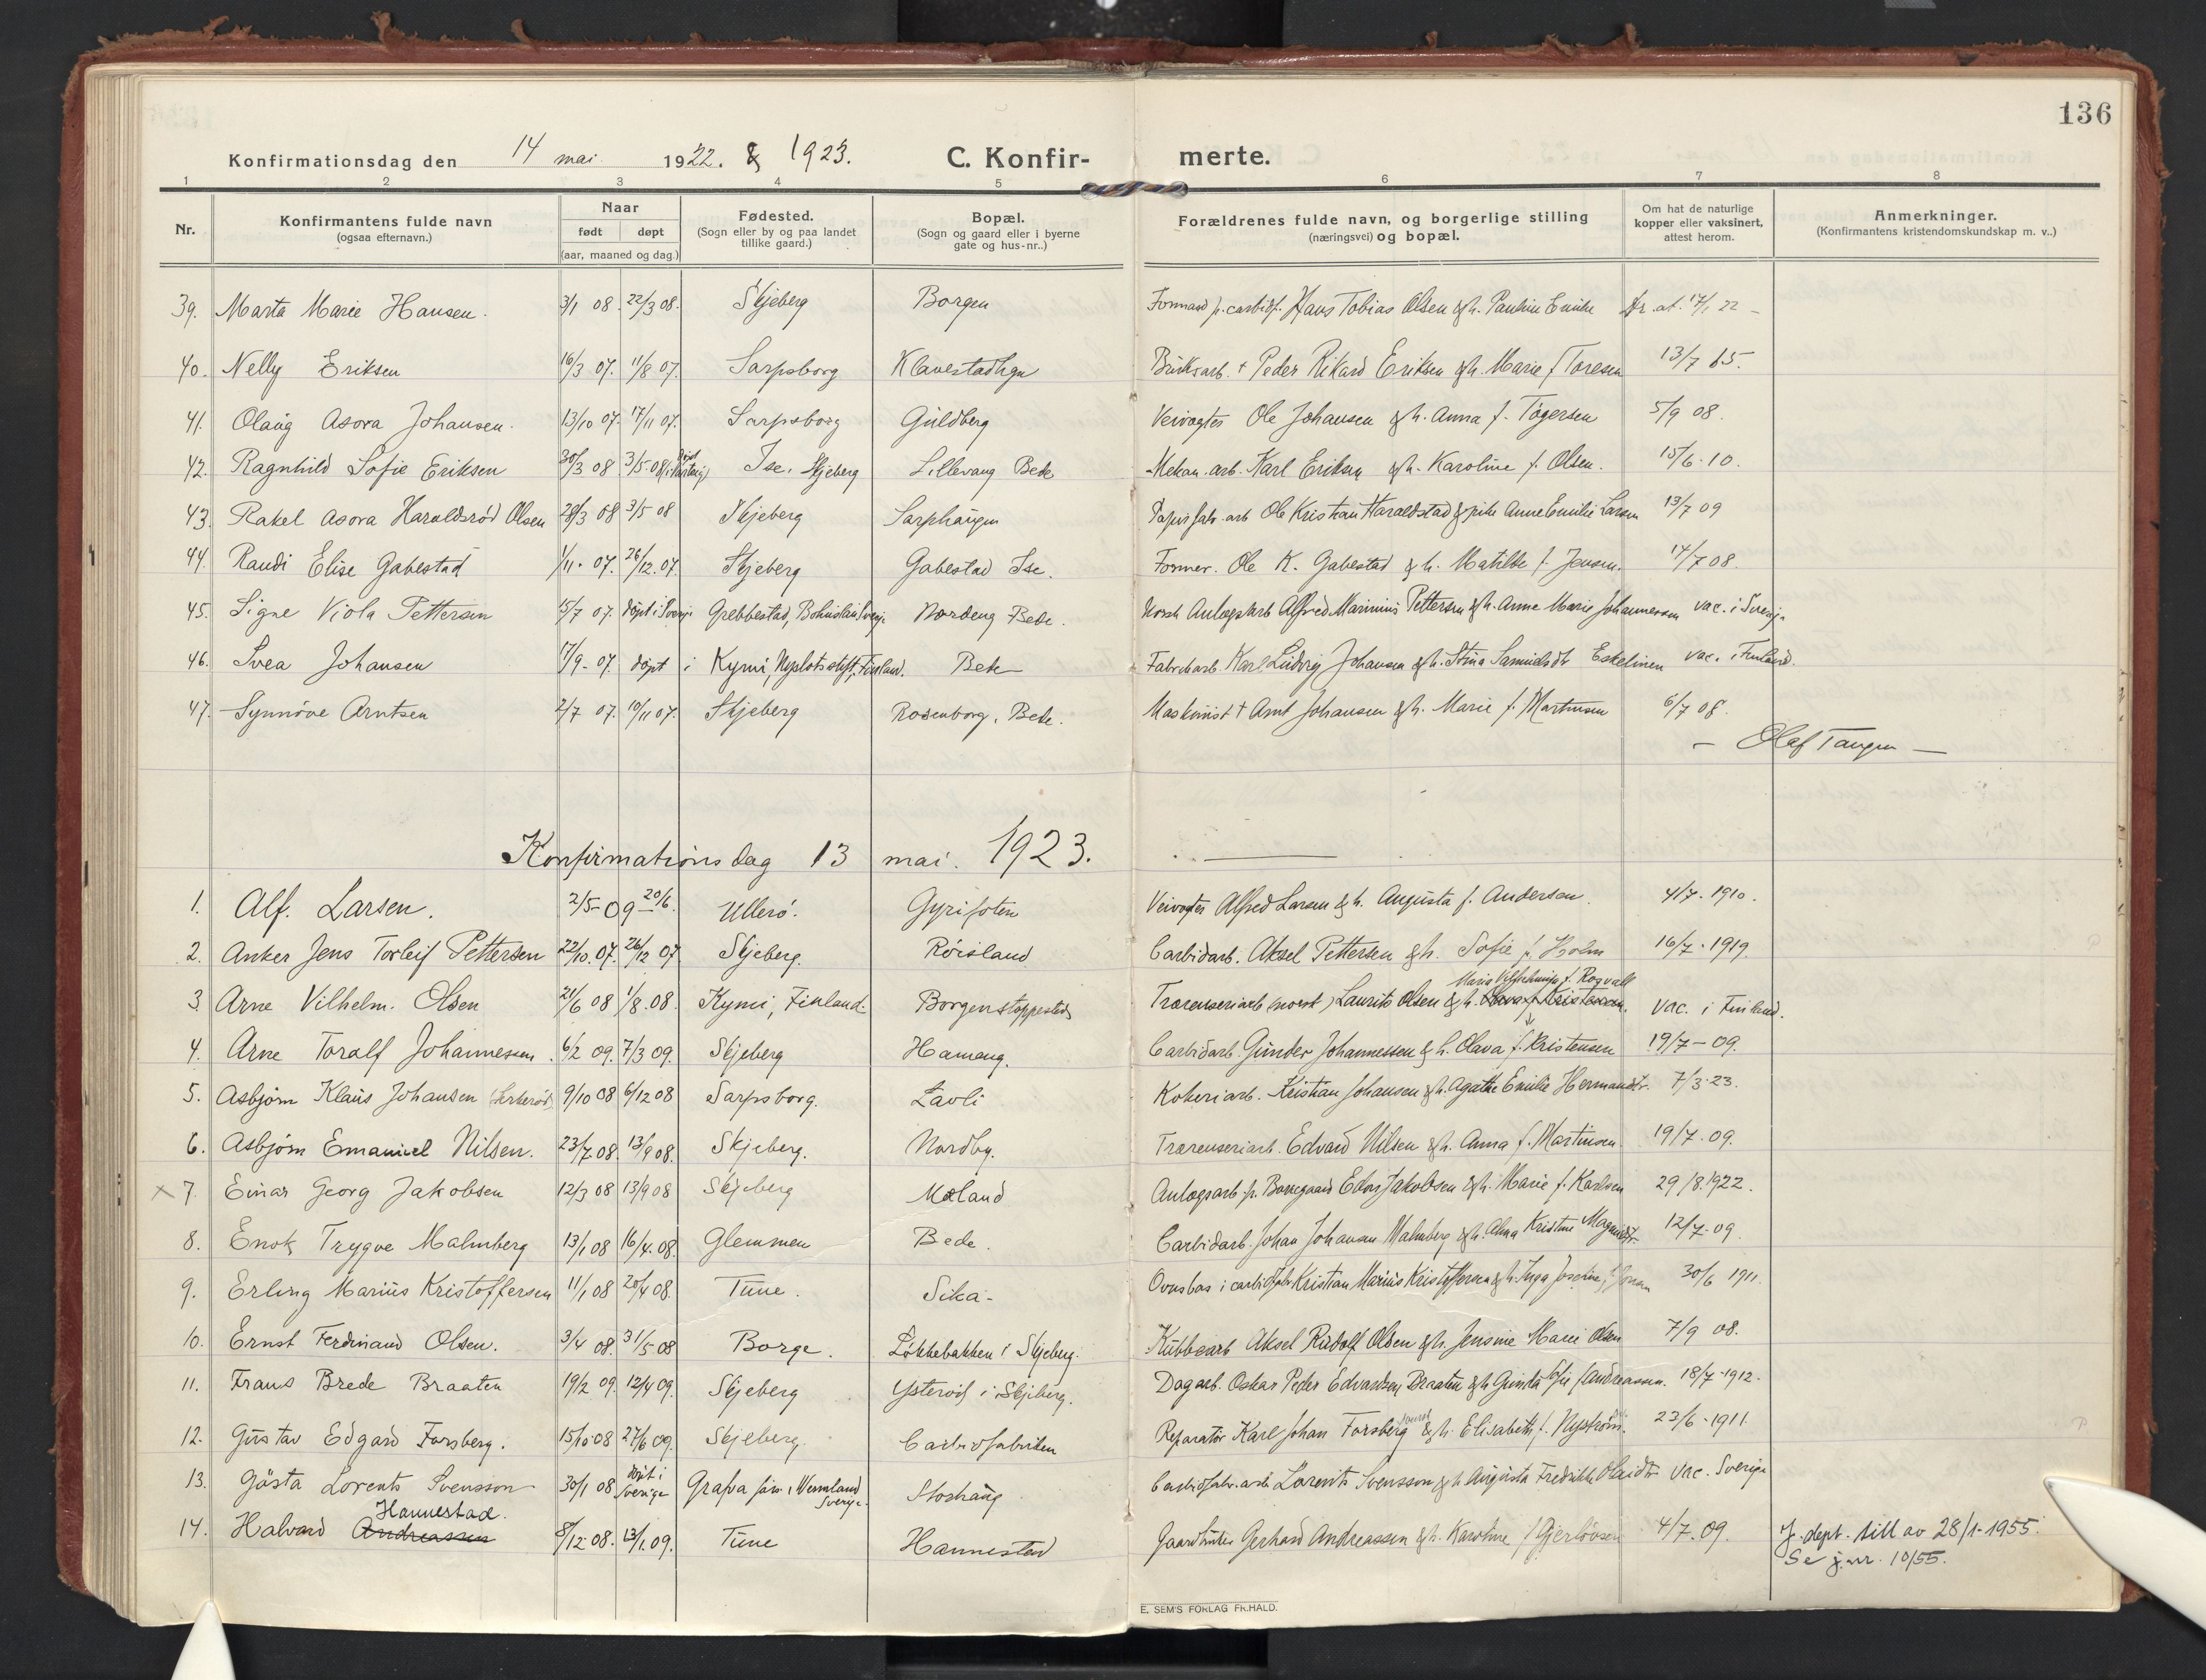 136
Konfirmationsdag den 14 mai 1922. & 1923. C. Konfir- merte.
1 2 3 4 5 6 7 8
Nr. Konfirmantens fulde navn (ogsaa efternavn.) Naar født døpt (aar, maaned og dag.) Fødested. (Sogn eller by og paa landet tillike gaard.) Bopæl. (Sogn og gaard eller i byerne gate og hus-nr..) Forældrenes fulde navn, og borgerlige stilling (næringsvei) og bopæl. Om hat de naturlige kopper eller vaksinert, attest herom. Anmerkninger. (Konfirmantens kristendomskundskap m. v..)
39. Marta Marie Hansen. 3/1 08. 22/3 08. Skjeberg Borgen Formand p. carbidf. Hans Tobias Olsen & h. Pauline Emilie Dr. at. 17/1 22 -
40. Nelly Eriksen 16/3 07. 11/8 07. Sarpsborg Klavestadhgn Bruksarb. + Peder Rikard Eriksen & h. Marie f. Toresen 13/7 15.
41. Olaug Asora Johansen. 13/10 07. 17/11 07. Sarpsborg Guldberg Veivogter Ole Johansen & h. Anna f. Tøgersen 5/9 08.
42. Ragnhild Sofie Eriksen 30/3 08 3/5 08 Ise, Skjeberg Lillevang Bede Mekan. arb. Karl Eriksen & h. Karoline f. Olsen. 15/6 10.
43. Rakel Asora Haraldsrød Olsen 28/3 08 3/5 08 Skjeberg Sarphaugen Papirfabr. arb Ole Kristian Haraldstad & pike Anne Emilie Larsen 13/7 09
44. Randi Elise Gabestad 1/11 07. 26/12 07. Skjeberg Gabestad Ise. Former. Ole K. Gabestad & h. Matilde f. Jensen. 14/7 08.
45. Signe Viola Pettersen 15/7 07. døpt i Sverige Grebbestad, Bohuslän Sverige Nordeng Bede. Norsk Anlægsarb Alfred Marinius Pettersen & h. Anne Marie Johannessen vac. i Sverige
46. Svea Johansen 17/9 07. døpt i Kymi, Nyslots stift, Finland. Bede Fabrikarb. Karl Ludvig Johansen & h. Stina Samuelsdtr Eskelinen vac. i Finland.
47. Synnøve Arntsen 2/7 07. 10/11 07. Skjeberg Rosenborg, Bede. Maskinist + Arnt Johansen & h. Marie f. Martinsen 6/7 08.
— Olaf Tangen —
Konfirmationsdag 13 mai. 1923.
1. Alf. Larsen. 2/5 09 20/6. Ullerø. Gyrifoten Veivogter Alfred Larsen & h. Augusta f. Andersen. 4/7. 1910.
2. Anker Jens Torleif Pettersen 22/10. 07. 26/12 07 Skjeberg. Røisland Carbidarb. Aksel Pettersen & h. Sofie f. Holm 16/7. 1919.
3. Arne Vilhelm. Olsen 21/6 08 1/8. 08. Kymi, Finland. Borgenstoppestad Træreuseriarb (norsk) Laurits Olsen & h. Olava f. Kristensen. Maria Vilhelmina f. Roqvall vac. i Finland.
4. Arne Toralf Johannessen. 6/2 09. 7/3 09. Skjeberg Hameng. Carbidarb. Gunder Johannessen & h. Olava f. Kristensen 19/7 - 09.
5. Asbjørn Klaus Johansen 9/10 08 6/12 08 Sarpsborg. Lavli Kokeriarb. Kristian Johansen & h. Agathe Emilie Hermansdtr. 7/3 23.
6. Asbjørn Emanuel Nilsen. 23/7. 08. 13/9 08. Skjeberg. Nordby. Træreuseriarb. Edvard Nilsen & h. Anna f. Martinsen. 19/7. 09.
x 7. Einar Georg Jakobsen 12/3 08 13/9 08 Skjeberg Moland Anlægsarb. p. Borregaard Edvin Jakobsen & h. Marie f. Karlsen 29/8. 1922.
8. Enok Trygve Malmberg 13/1 08 16/4. 08. Glemmen Bede. Carbidarb. Johan Johansen Malmberg & h. Alma Kristine Magnusdtr. 12/7. 09.
9. Erling Marius Kristoffersen 11/1 08 20/4 08. Tune. Sika. Ovnsbas i carbidfabr Kristian Marius Kristoffersen & h. Inga Josefine 30/6 1911.
10. Ernst Ferdinand Olsen. 3/4 08. 31/5 08 Borge. Løkkebakken i Skjeberg. Kubbearb Aksel Rudolf Olsen & h. Jensine Marie Olsen 7/9 08.
11. Frans Brede Braaten 19/2 09. 12/4 09. Skjeberg Ysterød i Skjeberg. Dagarb. Oskar Peder Edvardsen Braaten & h. Gunda Sofie f. Andreassen. 18/7 1912.
12. Gustav Edgard Forsberg. 15/10 08 27/6 09. Skjeberg. Carbidfabriken Reparatør Karl Johan Forsberg & h. Elisabeth f. Nystrøm. 23/6 - 1911.
13. Gösta Lorents Svensson 30/1 08 døpt i Sverige Grafva förs. i Wermland Sverige. Storhaug Carbidfabr. arb Lorents Svensson & h. Augusta Fredrikke Olaidtr vac. Sverige
14. Halvard Andreassen Hannestad. 8/12. 08. 13/1. 09. Tune Hannestad Gaardbruker Gerhard Andreassen & h. Karoline f. Gjerløvsen 4/7. 09. J. dept. till av 28/1-1955.
Se j.nr. 10/55.
E. SEM'S FORLAG FR.HALD.